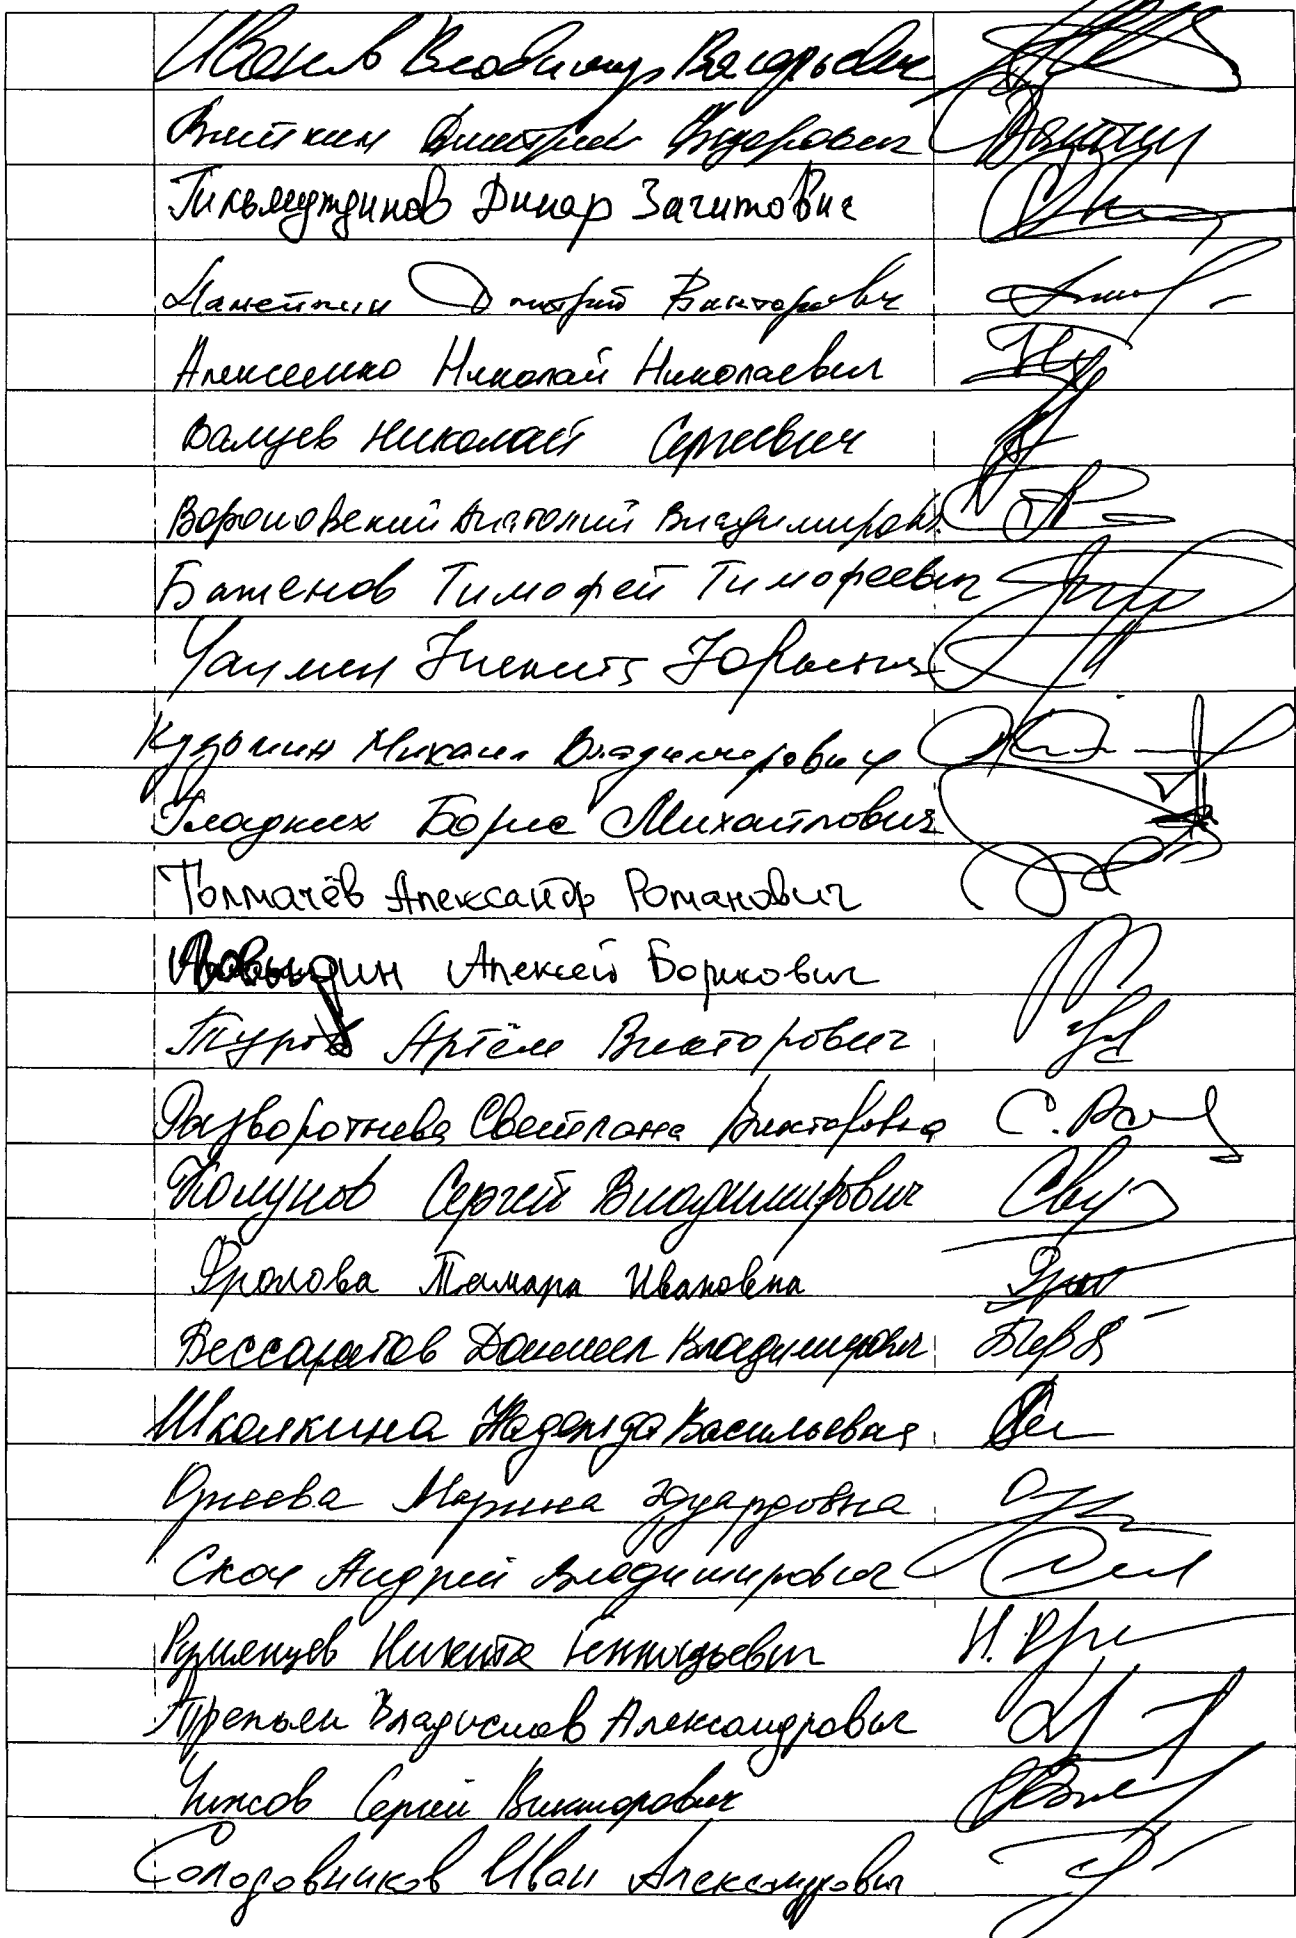 Иванов Владимир Валерьевич
Вяткин Дмитрий Фёдорович
Гильмутдинов Динар Загитович
Ламейкин Дмитрий Викторович
Алексеенко Николай Николаевич
Валуев Николай Сергеевич
Вороновский Анатолий Владимиров.
Баженов Тимофей Тимофеевич
Чаплин Никита Юрьевич
Кузьмин Михаил Владимирович
Гладких Борис Михайлович
Толмачёв Александр Романович
Алексей Борисович
Туров Артём Викторович
Разворотнева Светлана Викторовна
Колунов Сергей Владимирович
Фролова Тамара Ивановна
Бессарабов Даниил Владимирович
Школкина Надежда Васильевна
Оргеева Марина Эдуардовна
Скоч Андрей Владимирович
Румянцев Никита Геннадьевич
Владислав Александрович
Чижов Сергей Викторович
Солодовников Иван Александрович